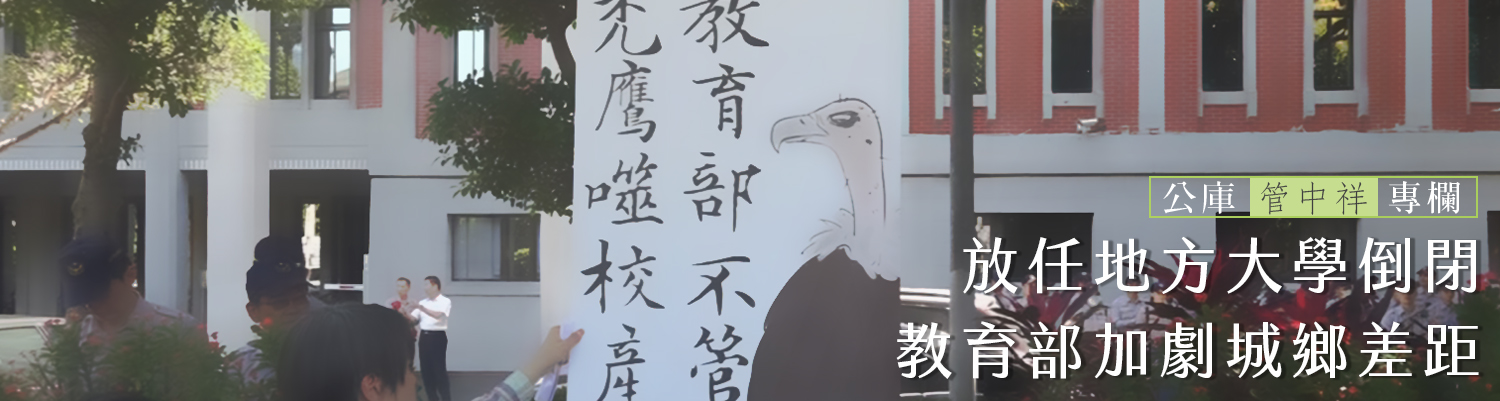 教育部不管
禿鷹噬校產
公庫 管中祥 專欄
放任地方大學倒閉
教育部加劇城鄉差距